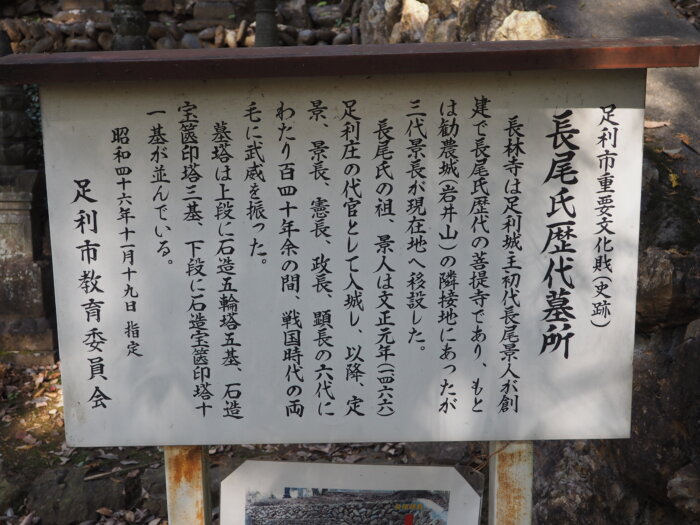 足利市重要文化財(史跡)
長尾氏歴代墓所
長林寺は足利城主初代長尾景人が創
建で長尾氏歴代の菩提寺であり、もと
は勧農城(岩井山)の隣接地にあったが
三代景長が現在地へ移設した。
長尾氏の祖、景人は文正元年(一四六六)
足利庄の代官として入城し、以降、定
景、景長、憲長、政長、顕長の六代に
わたり百四十年余の間、戦国時代の両
毛に武威を振った。
墓塔は上段に石造五輪塔五基、石造
宝篋印塔三基、下段に石造宝篋印塔十
一基が並んでいる。
昭和四十六年十一月十九日 指定
足利市教育委員会